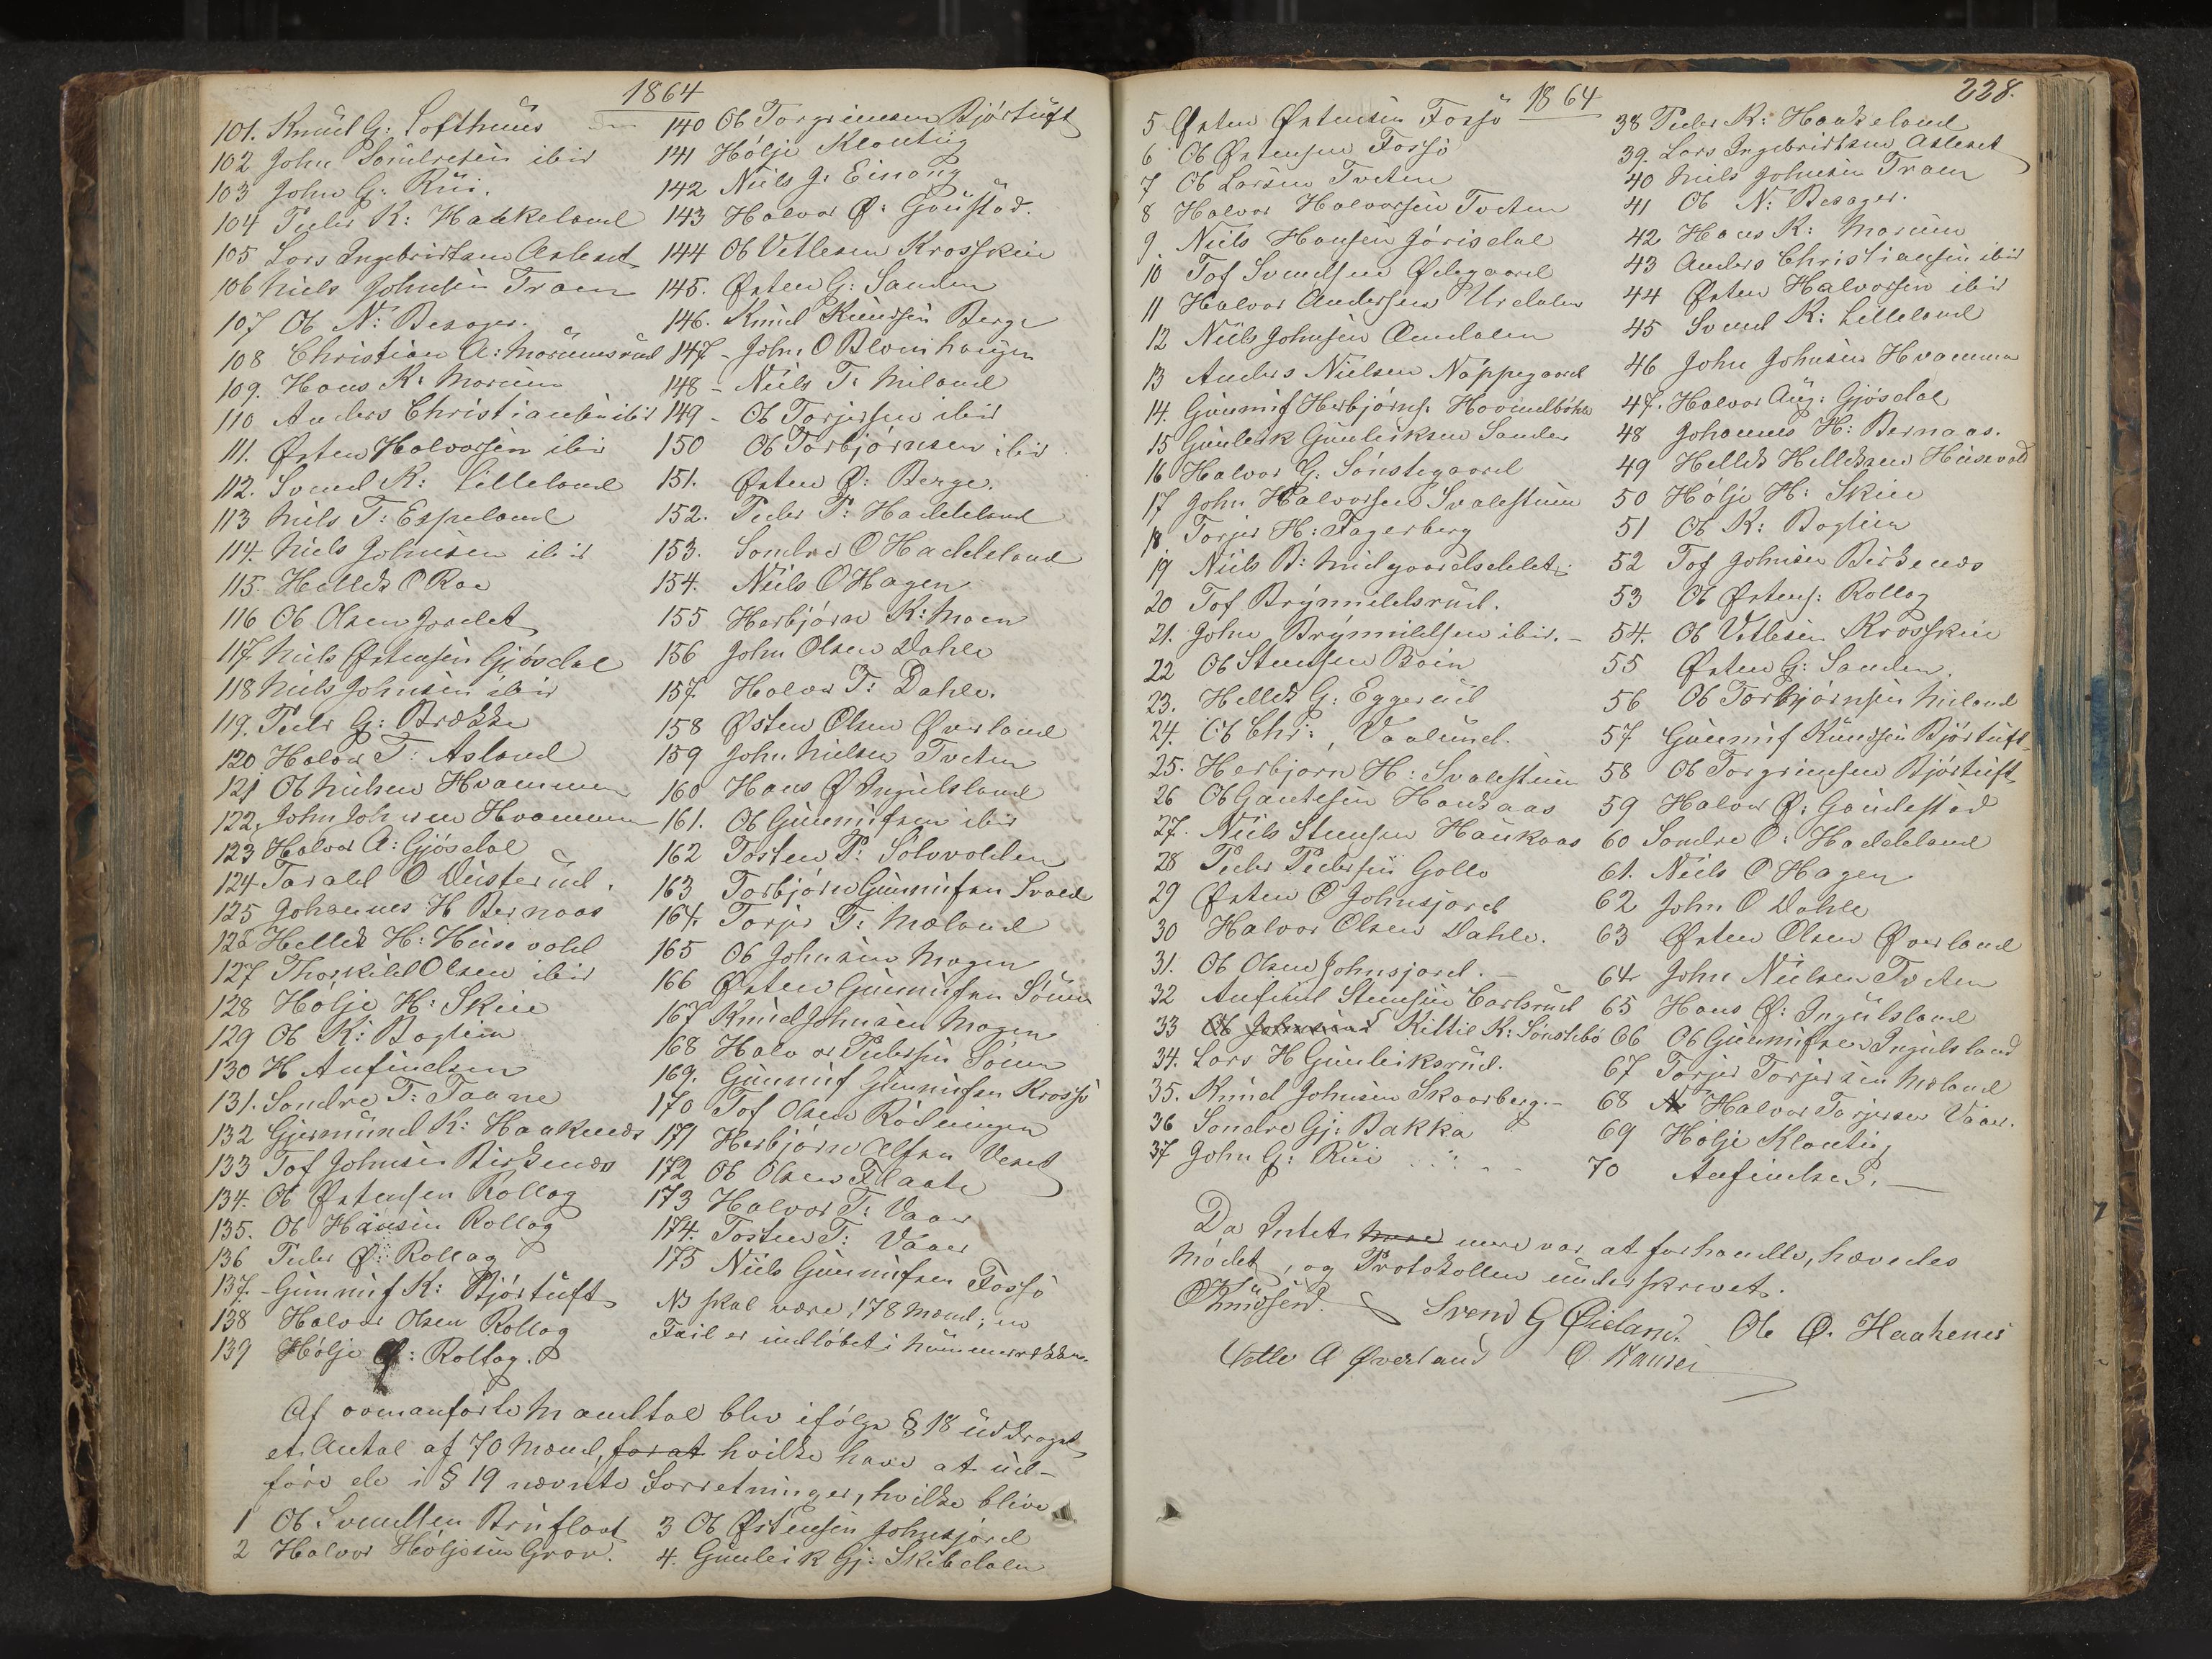 1864
101. Knud G: Lofthuus
102 John Sondresen ibid
103 John G: Rui.
104 Peder K: Haakeland
105 Lars Ingebrigtsen Asleset
106 Niels Johnsen Traen
107 Ole N: Besager.
108 Christian A: Moriumsrud
109. Hans K: Morium
110 Anders Christiansen ibid
111. Østen Halvorsen ibid
112. Svend K: Lilleland
113 Niels T: Espeland
114. Niels Johnsen ibid
115. Hellek O Roe
116 Ole Olsen Joselet
117. Niels Østensen Gjøsdal
118 Niels Johnsen ibid
119. Peder G: Brække
120 Halvor T: Asland
121 Ole Nielsen Hvammen
122. John Johnsen Hvammen
123 Halvor A: Gjøsdal
124 Tarald O Dusterud.
125 Johannes H Bernaas
126 Hellek H: Husevold
127 Thorkild Olsen ibid
128 Hølje H: Skie
129 Ole K: Boglien
130 H Anfindsen
131. Sondre T: Taane
132 Gjermund K: Haakenes
133 Tof Johnsen Birkenes
134. Ole Østensen Rollag
135. Ole Hansen Rollag
136 Peder Ø: Rollag
137. Gunnuf K: Bjørtuft
138 Halvor Olsen Rollag
139 Hølje Ø: Rollag.
140 Ole Torgrimsen Bjørtuft
141 Hølje Klonteig
142 Niels J. Einong
143 Halvor Ø: Goustad.
144 Ole Vetlesen Krosskin
145. Østen G: Sanden
146. Knud Knudsen Berge
147 - John O Blomhougen
148 - Niels T: Miland
149 - Ole Torjersen ibid
150 Ole Torbjørnsen ibid
151. Østen Ø: Berge.
152. Peder P: Haddeland
153. Sondre O Haddeland
154. Niels O Hagen
155 Herbjørn K: Moen
156 John Olsen Dahle
157 Halvor T: Dahle.
158 Østen Olsen Øverland
159 John Nielsen Tveten
160 Hans Ø Ingulsland
161. Ole Gunnufsen ibid
162 Tosten P: Solvolden
163 Torbjørn Gunnufsen Svael
164. Torjer T: Mæland
165 Ole Johnsen Mogen
166 Østen Gunnufsen Søum
167 Knud Johnsen Mogen
168 Halvor Pedersen Søum
169. Gunnuf Gunnufsen Krossø
170 Tof Olsen Rødningen
171 Herbjørn Alfsen Veset
172 Ole Olsen Flaate
173 Halvor T: Vaaer
174. Tosten T: Vaaer
175 Niels Gunnufsen Fossø
NB skal være 178 Mænd; en
Feil er indløbet i Nummerrækken.
Af ovenanførte Mandtal blev ifølge § 18 uddraget
et Antal af 70 Mænd, for at hvilke have at ud-
føre de i § 19 nævnte Forretninger, hvilke blive
1 Ole Svendsen Bruflaat
2 Halvor Høljesen Grov.
3 Ole Østensen Johnsjord
4. Gunleik Gj: Skibdalen
1864
228.
5 Østen Østensen Fossø
6 Ole Østensen Fossø
7 Ole Larsen Tveten
8 Halvor Halvorsen Tveten
9 Niels Hansen Jørisdal
10 Tof Svendsen Ødegaard
11 Halvor Andersen Urdalen
12 Niels Johnsen Omdalen
13 Anders Nielsen Nøppegaard
14. Gunnuf Herbjørns. Hovindbøhle
15 Gunleik Gunleiksen Sander
16 Halvor G: Sønstegaard
17 John Halvorsen Svalestuen
18 Torjer H: Fagerberg
19 Niels B: Midgaardsslet
20 Tof Brynnildsrud.
21. John Brynnildsen ibid. -
22 Ole Stensen Boin
23. Hellek G: Eggerud
24. Ole Chr: Vaalund.
25. Herbjørn H: Svalestuen
26 Ole Gautesen Haukaas
27. Niels Stensen Haukaas
28 Peder Pedersen Gollo
29 Østen O Johnsjord
30 Halvor Olsen Dahle.
31. Ole Olsen Johnsjord. -
32 Anfind Stensen Carlsrud
33 Ole Johnsen Kittil K: Sønstebø
34. Lars H Gunleiksrud.
35. Knud Johnsen Skaarberg. -
36 Sondre Gj: Bakka
37 John G: Rui
38 Peder K: Haakeland
39. Lars Ingebrigtsen Asleset
40 Niels Johnsen Traen
41 Ole N: Besager.
42 Hans K: Morium
43 Anders Christiansen ibid
44 Østen Halvorsen ibid
45 Svend K: Lilleland
46 John Johnsen Hvammen
47. Halvor Aug: Gjøsdal
48 Johannes H: Bernaas.
49 Hellek Helleksen Husevold
50 Hølje H: Skie
51 Ole K: Boglien
52 Tof Johnsen Birkenes
53 Ole Østens: Rollag
54. Ole Vetlesen Krosskin
55 Østen G: Sanden.
56 Ole Torbjørnsen Miland
57 Gunnuf Knudsen Bjørtuft
58 Ole Torgrimsen Bjørtuft
59 Halvor Ø: Goudestad
60 Sondre O: Haddeland
61. Niels O Hagen
62 John O Dahle
63 Østen Olsen Øverland
64 John Nielsen Tveten
65 Hans Ø: Ingulsland
66 Ole Gunnufsen Ingulsland
67 Torjer Torjersen Mæland
68 Halvor Torjersen Vaaer.
69 Hølje Klonteig
70 Anfindsen. -
Da Intet mere mere var at forhandle, hævedes
Mødet, og Protokollen underskrevet.
O Knudsen. Svend G Øieland. Ole O. Haakenes
Vetle A Øverland O Hansen